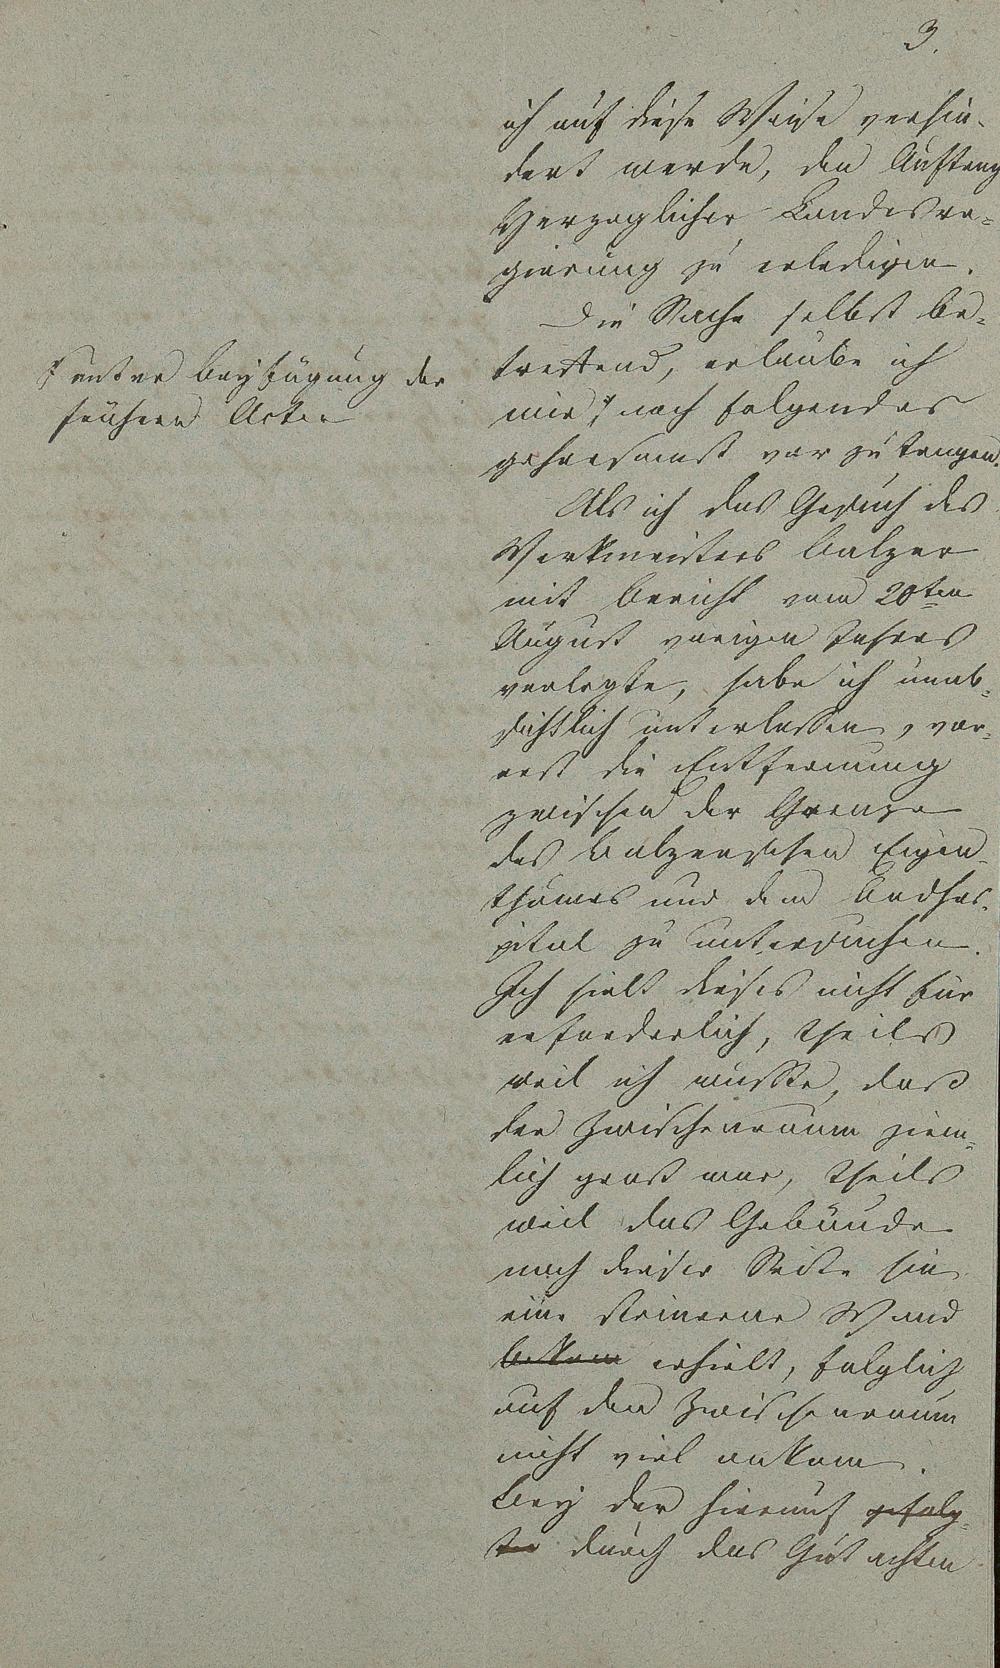 3.
ich auf diese Weise verhin-
dert werde, den Auftrag
Herzoglicher Landesre-
gierung zu erledigen.
Die Sache selbst be-
treffend, erlaube ich
mir noch folgendes
gehorsamst vor zu tragen.
unter Beyfügung der
frühern Akten
Als ich das Gesuch des
Werkmeisters Balzer
mit Bericht vom 20ten
August vorigen Jahres
vorlegte, habe ich unab-
sichtlich unterlassen, vor-
erst die Entfernung
zwischen der Grenze
des Balzerschen Eigen-
thumes und dem Badhos-
pital zu untersuchen.
Ich hielt dieses nicht für
erforderlich, theils
weil ich wußte, daß
der Zwischenraum ziem-
lich groß war, theils
weil das Gebäude
nach dieser Seite hin
eine steinerne Wand
bekam erhielt, folglich
auf den Zwischenraum
nicht viel ankam.
Bey der hierauf erfolg-
ten durch das Gutachten